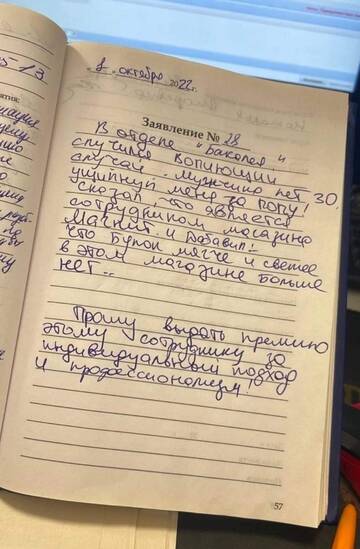 1 октября 2022 г.
Заявление № 28
В отделе "Бакалея"
случился вопиющий
случай. Мужчина лет 30,
ущипнул меня за попу!
Сказал, что является
сотрудником магазина
Магнит и добавил:
что булок мягче и свежее
в этом магазине больше
нет...
Прошу выдать премию
этому сотруднику за
индивидуальный подход
и профессионализм!
57